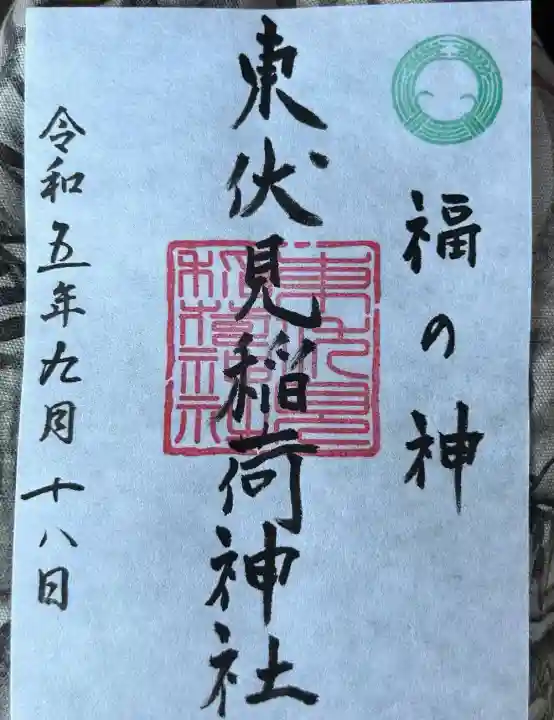 福の神
東伏見稲荷神社
令和五年九月十八日